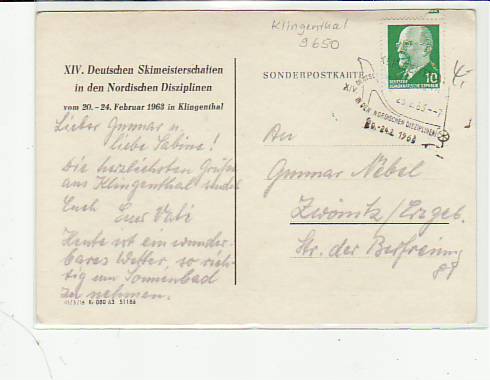 Klingenthal
9650
XIV. Deutschen Skimeisterschaften
in den Nordischen Disziplinen
vom 20.–24. Februar 1963 in Klingenthal
SONDERPOSTKARTE
10
DEUTSCHE
DEMOKRATISCHE REPUBLIK
XIV.
IN DEN NORDISCHEN DISZIPLINEN
20.-24.2.1963
Lieber Gunnar u.
liebe Sabine!
Die herzlichsten Grüße
aus Klingenthal sendet
Euch Euer Vati
Heute ist ein wunder-
bares Wetter, so rich-
tig um Sonnenbad
zu nehmen.
An
Gunnar Nebel
Zwönitz/Erzgeb.
Str. der Befreiung